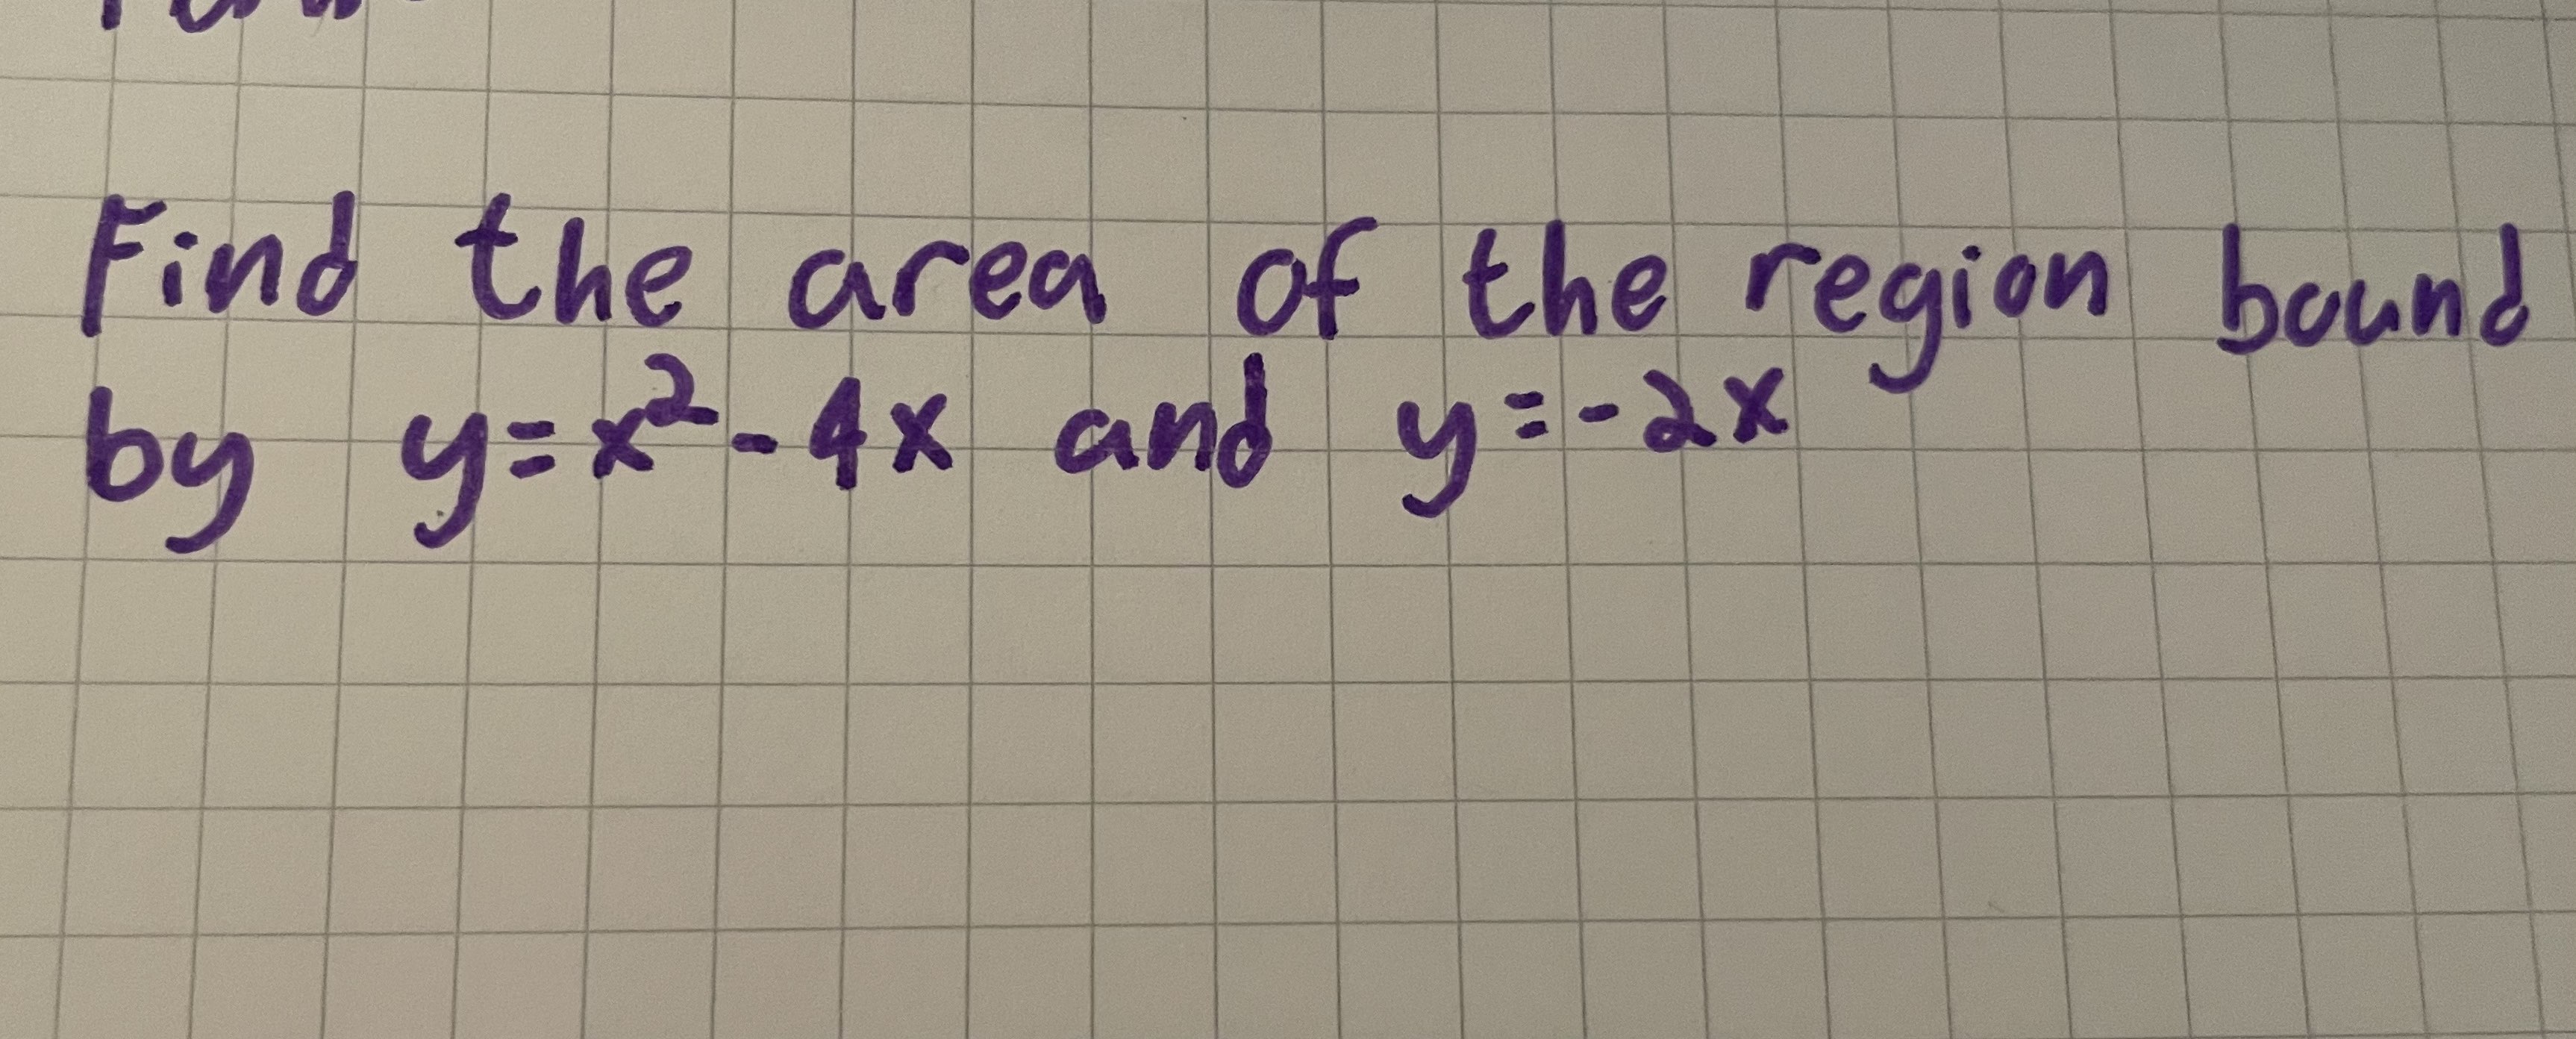 Find the area of the region bound
by y=x²-4x and y=-2x